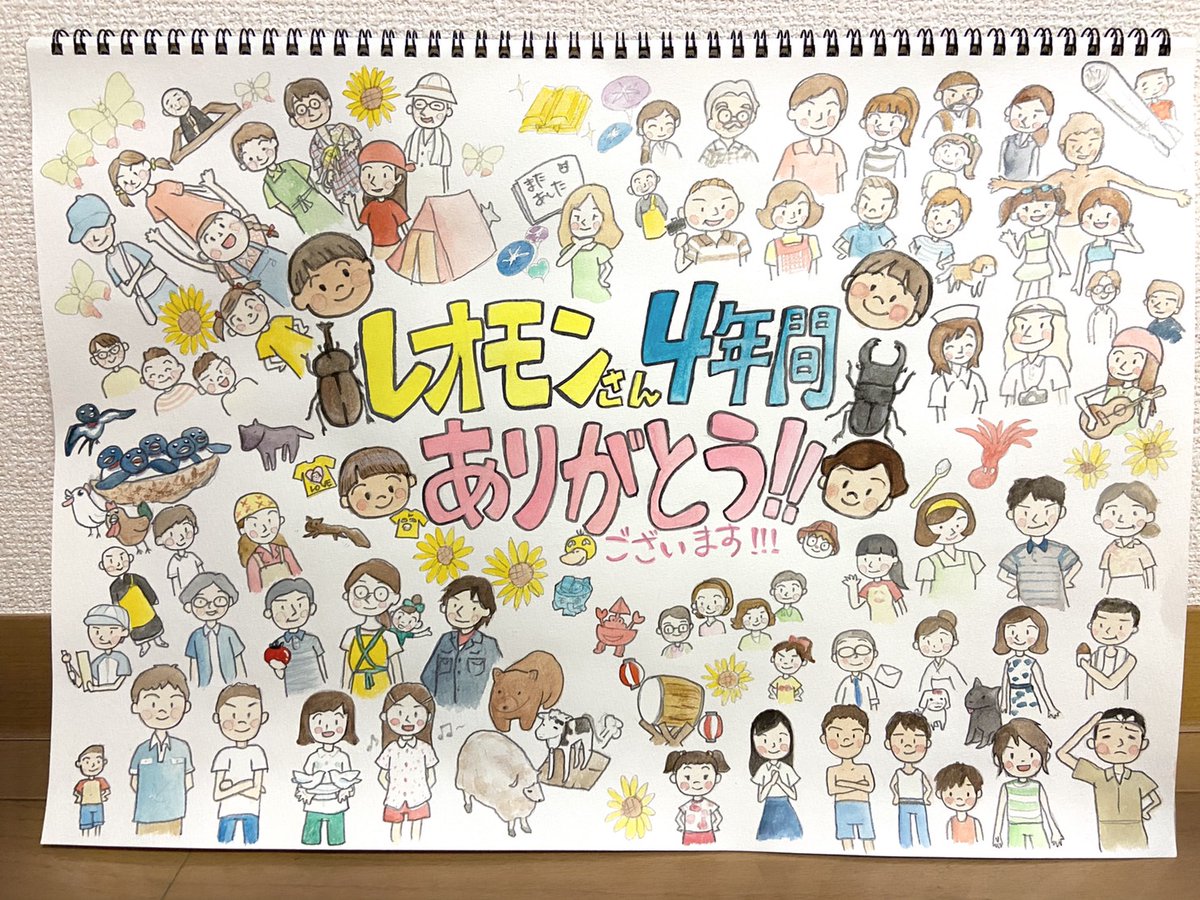 レオモンさん4年間
ありがとう!!
ございます!!!
LOVE